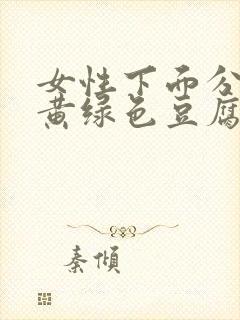 女性下面分
黄绿色豆腐
秦倾